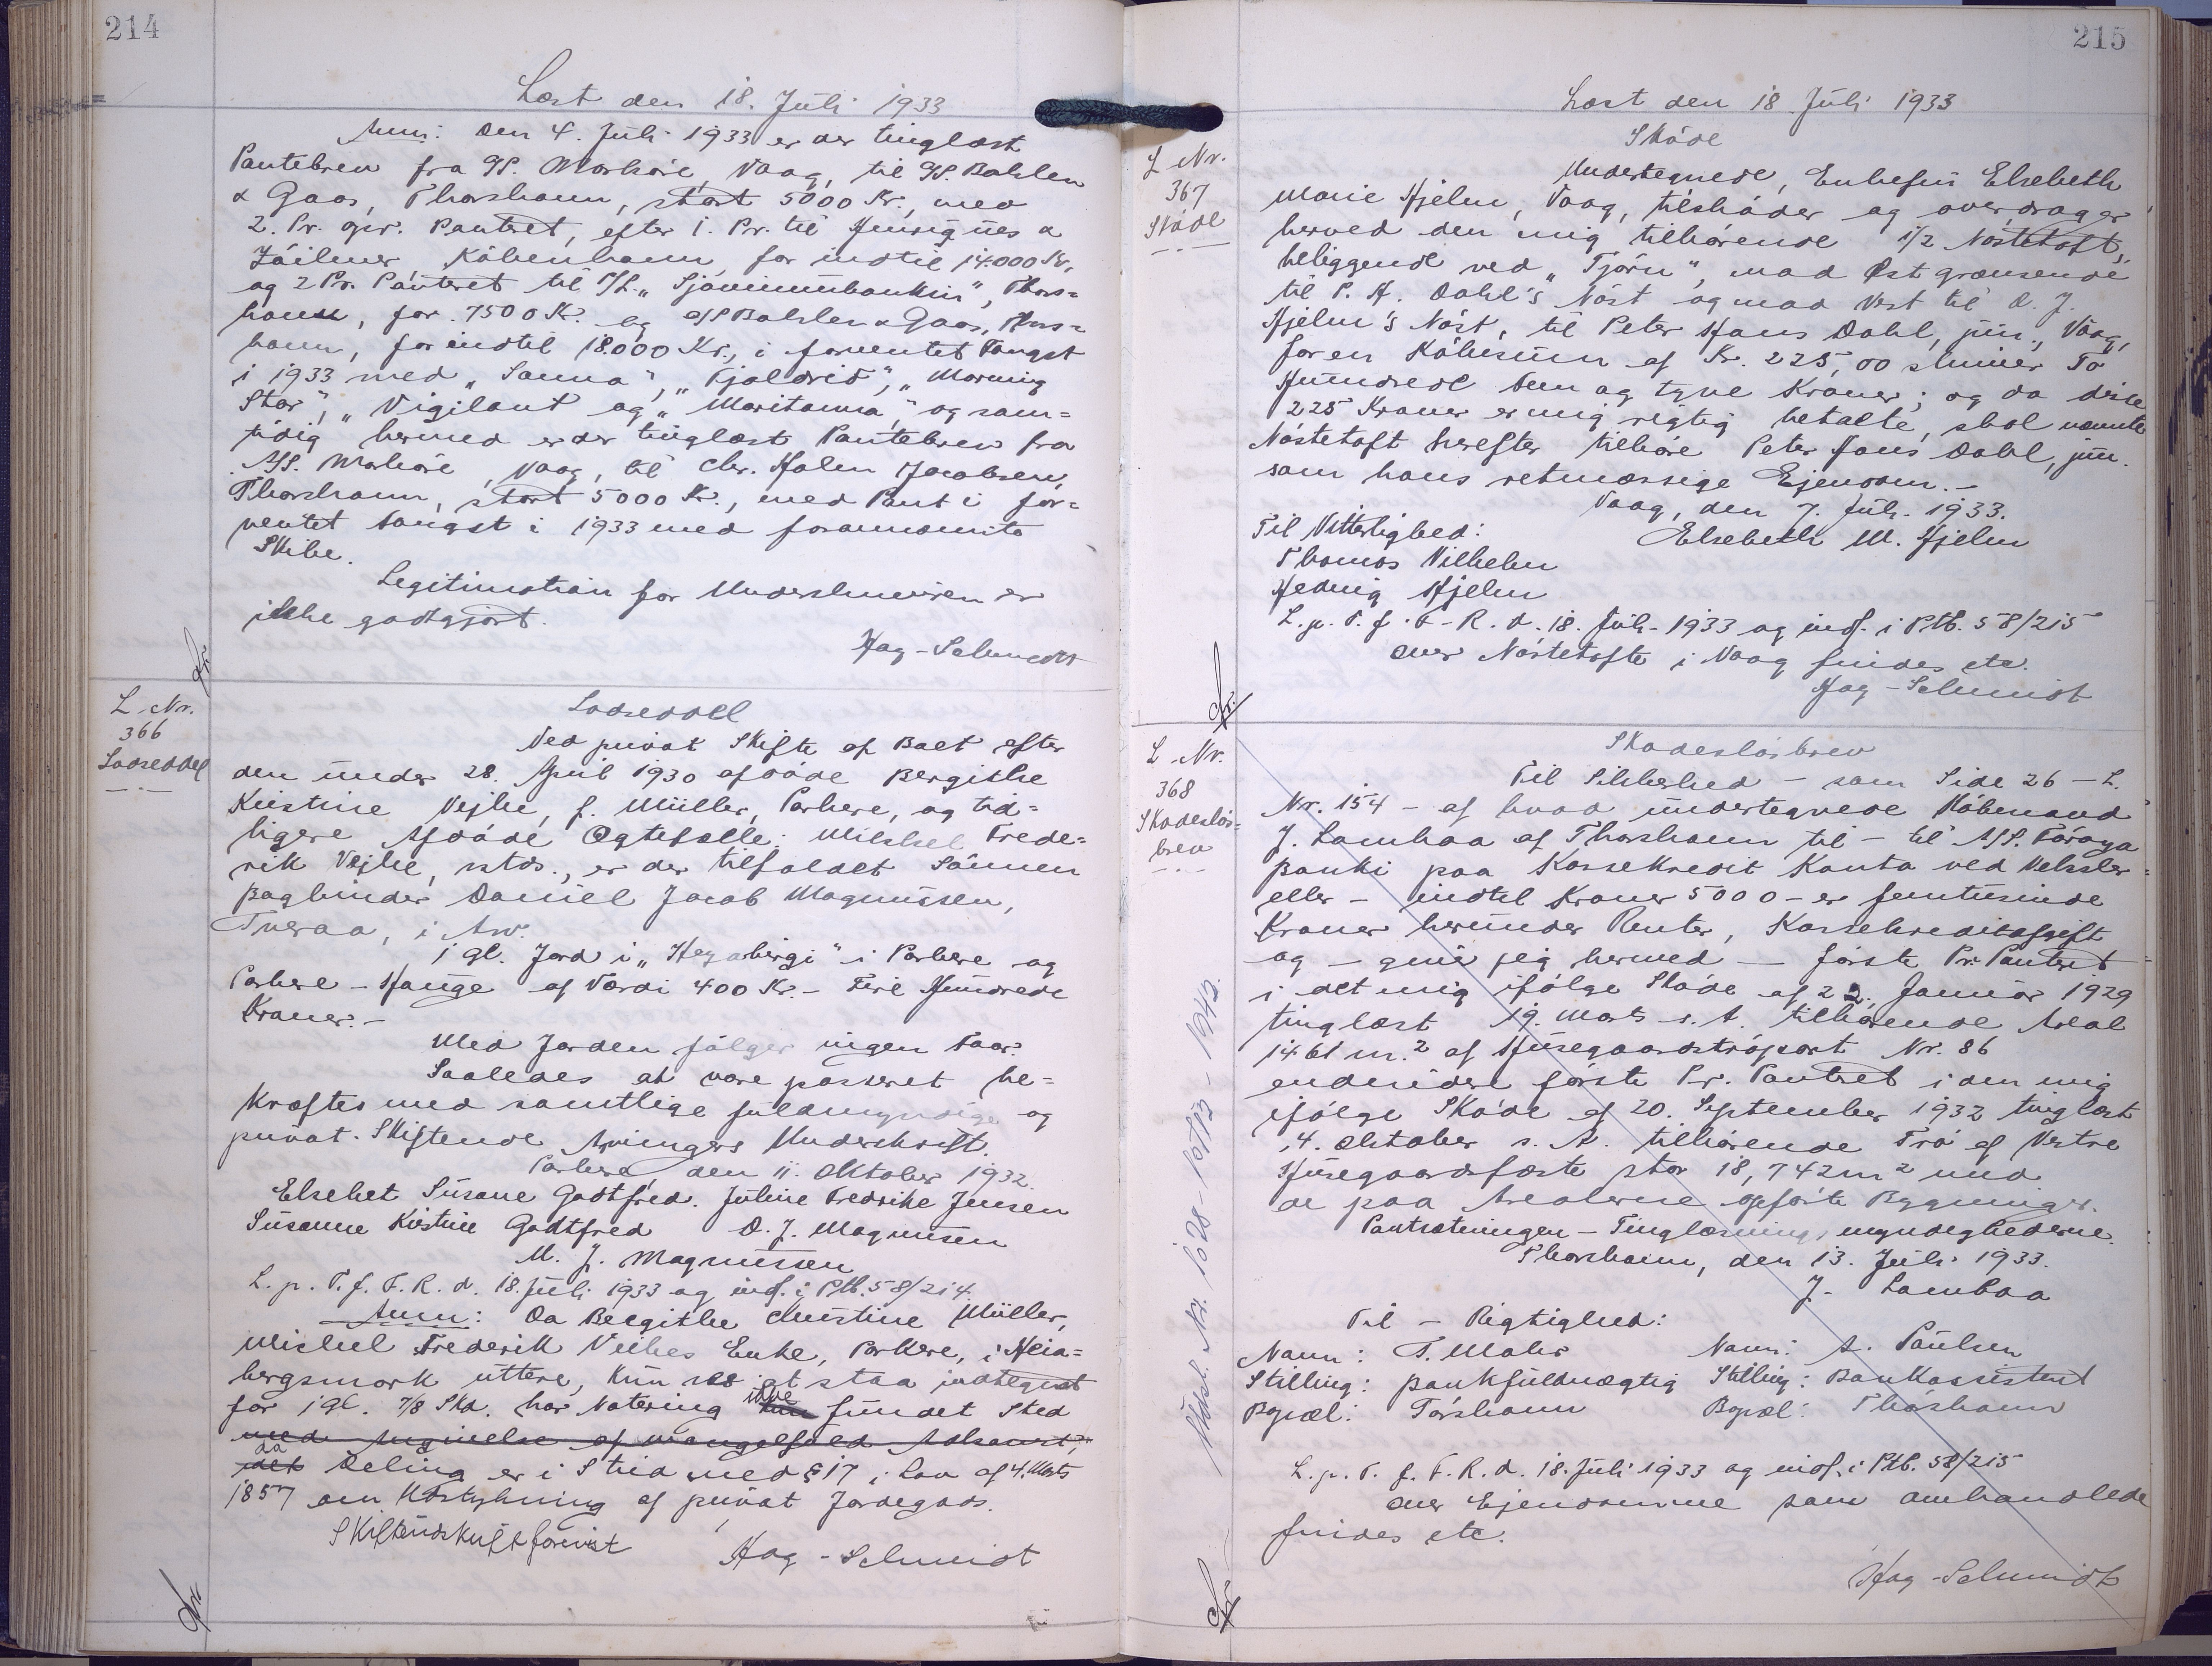 214
Læst den 18. Juli 1933
Anm: Den 4. Juli 1933 er der tinglæst
Pantebrev fra A/S. Mørkøre, Vaag, til A/S. Bahlen
& Gaos, Thorshavn, stort 5000 Kr., med
2. Pr. opr. Panteret, efter 1. Pr. til Henriques &
Zøilner København for indtil 14.000 Kr.
og 2 Pr. Panteret til A/S. "Sjóvinnubankin", Thors=
havn, for 7500 Kr. og A/S Bahlen & Gaos, Thors=
havn, for indtil 18.000 Kr., i forventet Fangst
i 1933 med "Sanna", "Fjaldrid", "Morning
Star", "Vigilant og "Maritanna", og sam=
tidig hermed er der tinglæst Pantebrev fra
A/S. Mørkøre, Vaag, til Chr. Holm Jacobsen,
Thorshavn, stort 5000 Kr., med Pant i for=
ventet Fangst i 1933 med forannævnte
Skibe.
Legitimation for Underskriveren er
ikke godtgjort.
Hag-Schmidt
L. Nr.
366
Lodseddel
Lodseddel
Ved privat Skifte af Boet efter
den under 28. April 1930 afdøde Bergithe
Kristine Vejhe, f. Müller, Porkere, og tid=
ligere Afdøde Ægtefælle: Mikkel Frede=
rik Vejhe, sstds., er der tilfaldet Sønnen
Bogbinder Daniel Jacob Magnussen,
Tveraa, i Arv.
1 gl. Jord i "Hegabergi" i Porkere og
Porkere - Hauge af Værdi 400 Kr. - Fire Hundrede
Kroner. -
Med Jorden følger ingen Faar.
Saaledes at være passeret be=
kræftes med samtlige fuldmyndige og
privat. Skiftende Arvingers Underskrift.
Porkere, den 11. Oktober 1932.
Elsebet Susane Godtfred. Juline Fredrike Jensen
Susanne Kirstine Godtfred D. J. Magnussen
M. J. Magnussen
L. p. T. f. F. R. d. 18. Juli 1933 og indf. i Ptb. 58/214.
Anm: Da Bergithe Christine Müller,
Mickel Frederik Veihes Enke, Porkere, i Heia=
bergsmark uttere, kun ses at staa indtegnet
for 1 gl. 7/8 Skd. har Notering ikke fundet Sted
med Angivelse af mangelfuld Adkomst,
da
det Deling er i Strid med § 17 i Lov af 4. Marts
1857 om Udstykning af privat Jordegods.
Hag-Schmidt
215
Læst den 18. Juli 1933
L Nr.
367
Skøde
Skøde
Undertegnede, Enkefru Elsebeth
Marie Hjelm, Vaag, tilskøder og overdrager
herved den mig tilhørende 1/2 Nøstetoft,
beliggende ved "Tjørn", mod Øst grænsende
til P. H. Dahl's Nøst og mod Vest til D. J.
Hjelm's Nøst, til Peter Hans Dahl, jun., Vaag,
for en Købesum af Kr. 225,00 skriver To
Hundrede Fem og tyve Kroner; og da disse
225 Kroner er mig rigtig betalte, skal nævnte
Nøstetoft herefter tilhøre Peter Hans Dahl, jun.
som hans retmæssige Ejendom. -
Vaag, den 7. Juli 1933.
Til Vitterlighed: Elsebeth M. Hjelm
Thomas Vilhelm
Hedvig Hjelm
L. p. T. f. F. R. d. 18. Juli 1933 og indf. i Ptb. 58/215
over Nøstetofte i Vaag findes etc.
Hag-Schmidt
L Nr.
368
Skadesløs=
brev
Skadesløsbrev
Til Sikkerhed - som Side 26 - L.
Nr. 154 - af hvad undertegnede Købmand
J. Lambaa af Thorshavn til - til A/S. Føroya
Banki paa Kassekredit Konto ved Veksler
eller - indtil Kroner 5000 - er femtusinde
Kroner herunder Renter, Kassekreditafgift
og - giver jeg hermed - første Pr. Panteret
i det mig ifølge Skøde af 22. Januar 1929
tinglæst 19. Marts s. A. tilhørende Areal
1461 m.² af Husegaardstrøpart Nr. 86
endvidere første Pr. Panteret i den mig
ifølge Skøde af 20. September 1932 tinglæst
4. Oktober s. A. tilhørende Trø af Vestre
Husegaardsfæste stor 18,742 m² med
de paa Arealerne opførte Bygninger.
Pantsætningen - Tinglæsnings myndighederne.
Thorshavn, den 13. Juli 1933.
J. Lambaa
Til - Rigtighed:
Navn: T. Mohr Navn: A. Paulsen
Stilling: Bankfuldmægtig Stilling: Bankassistent
Bopæl: Tórshavn Bopæl: Thórshavn
L. p. T. f. F. R. d. 18. Juli 1933 og indf. i Ptb. 58/215
over Ejendomme som omhandlede
findes etc.
Hag-Schmidt